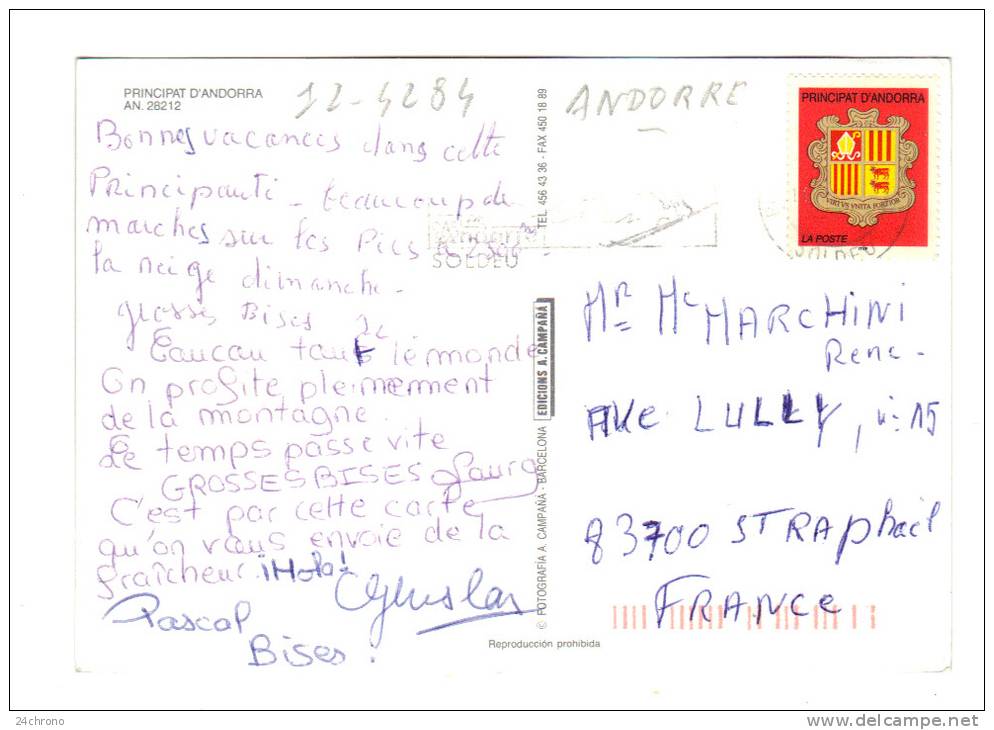 PRINCIPAT D'ANDORRA
AN. 28212
12-4284
ANDORRE
Bonnes vacances dans cette
Principauti - beaucoup de
marches sur les Pics
la neige dimanche -
grosses Bises
Caucau tout le monde
On profite pleinement
de la montagne
Le temps passe vite
GROSSES BISES Laura
C'est par cette carte
qu'on vous envoie de la
fraîcheur. ¡Hola!
Pascal
Bises.
TEL. 456 43 36 - FAX 450 18 89
EDICIONS A. CAMPAÑA
© FOTOGRAFÍA A. CAMPAÑA - BARCELONA
Reproducción prohibida
Andorra
SOLDEU
PRINCIPAT D'ANDORRA
VIRTVS VNITA FORTIOR
LA POSTE
Mr Me MARCHINI
Rene -
AVE LULLY, n: 15
83700 ST RAphaël
FRANCE
24chrono
www.delcampe.net